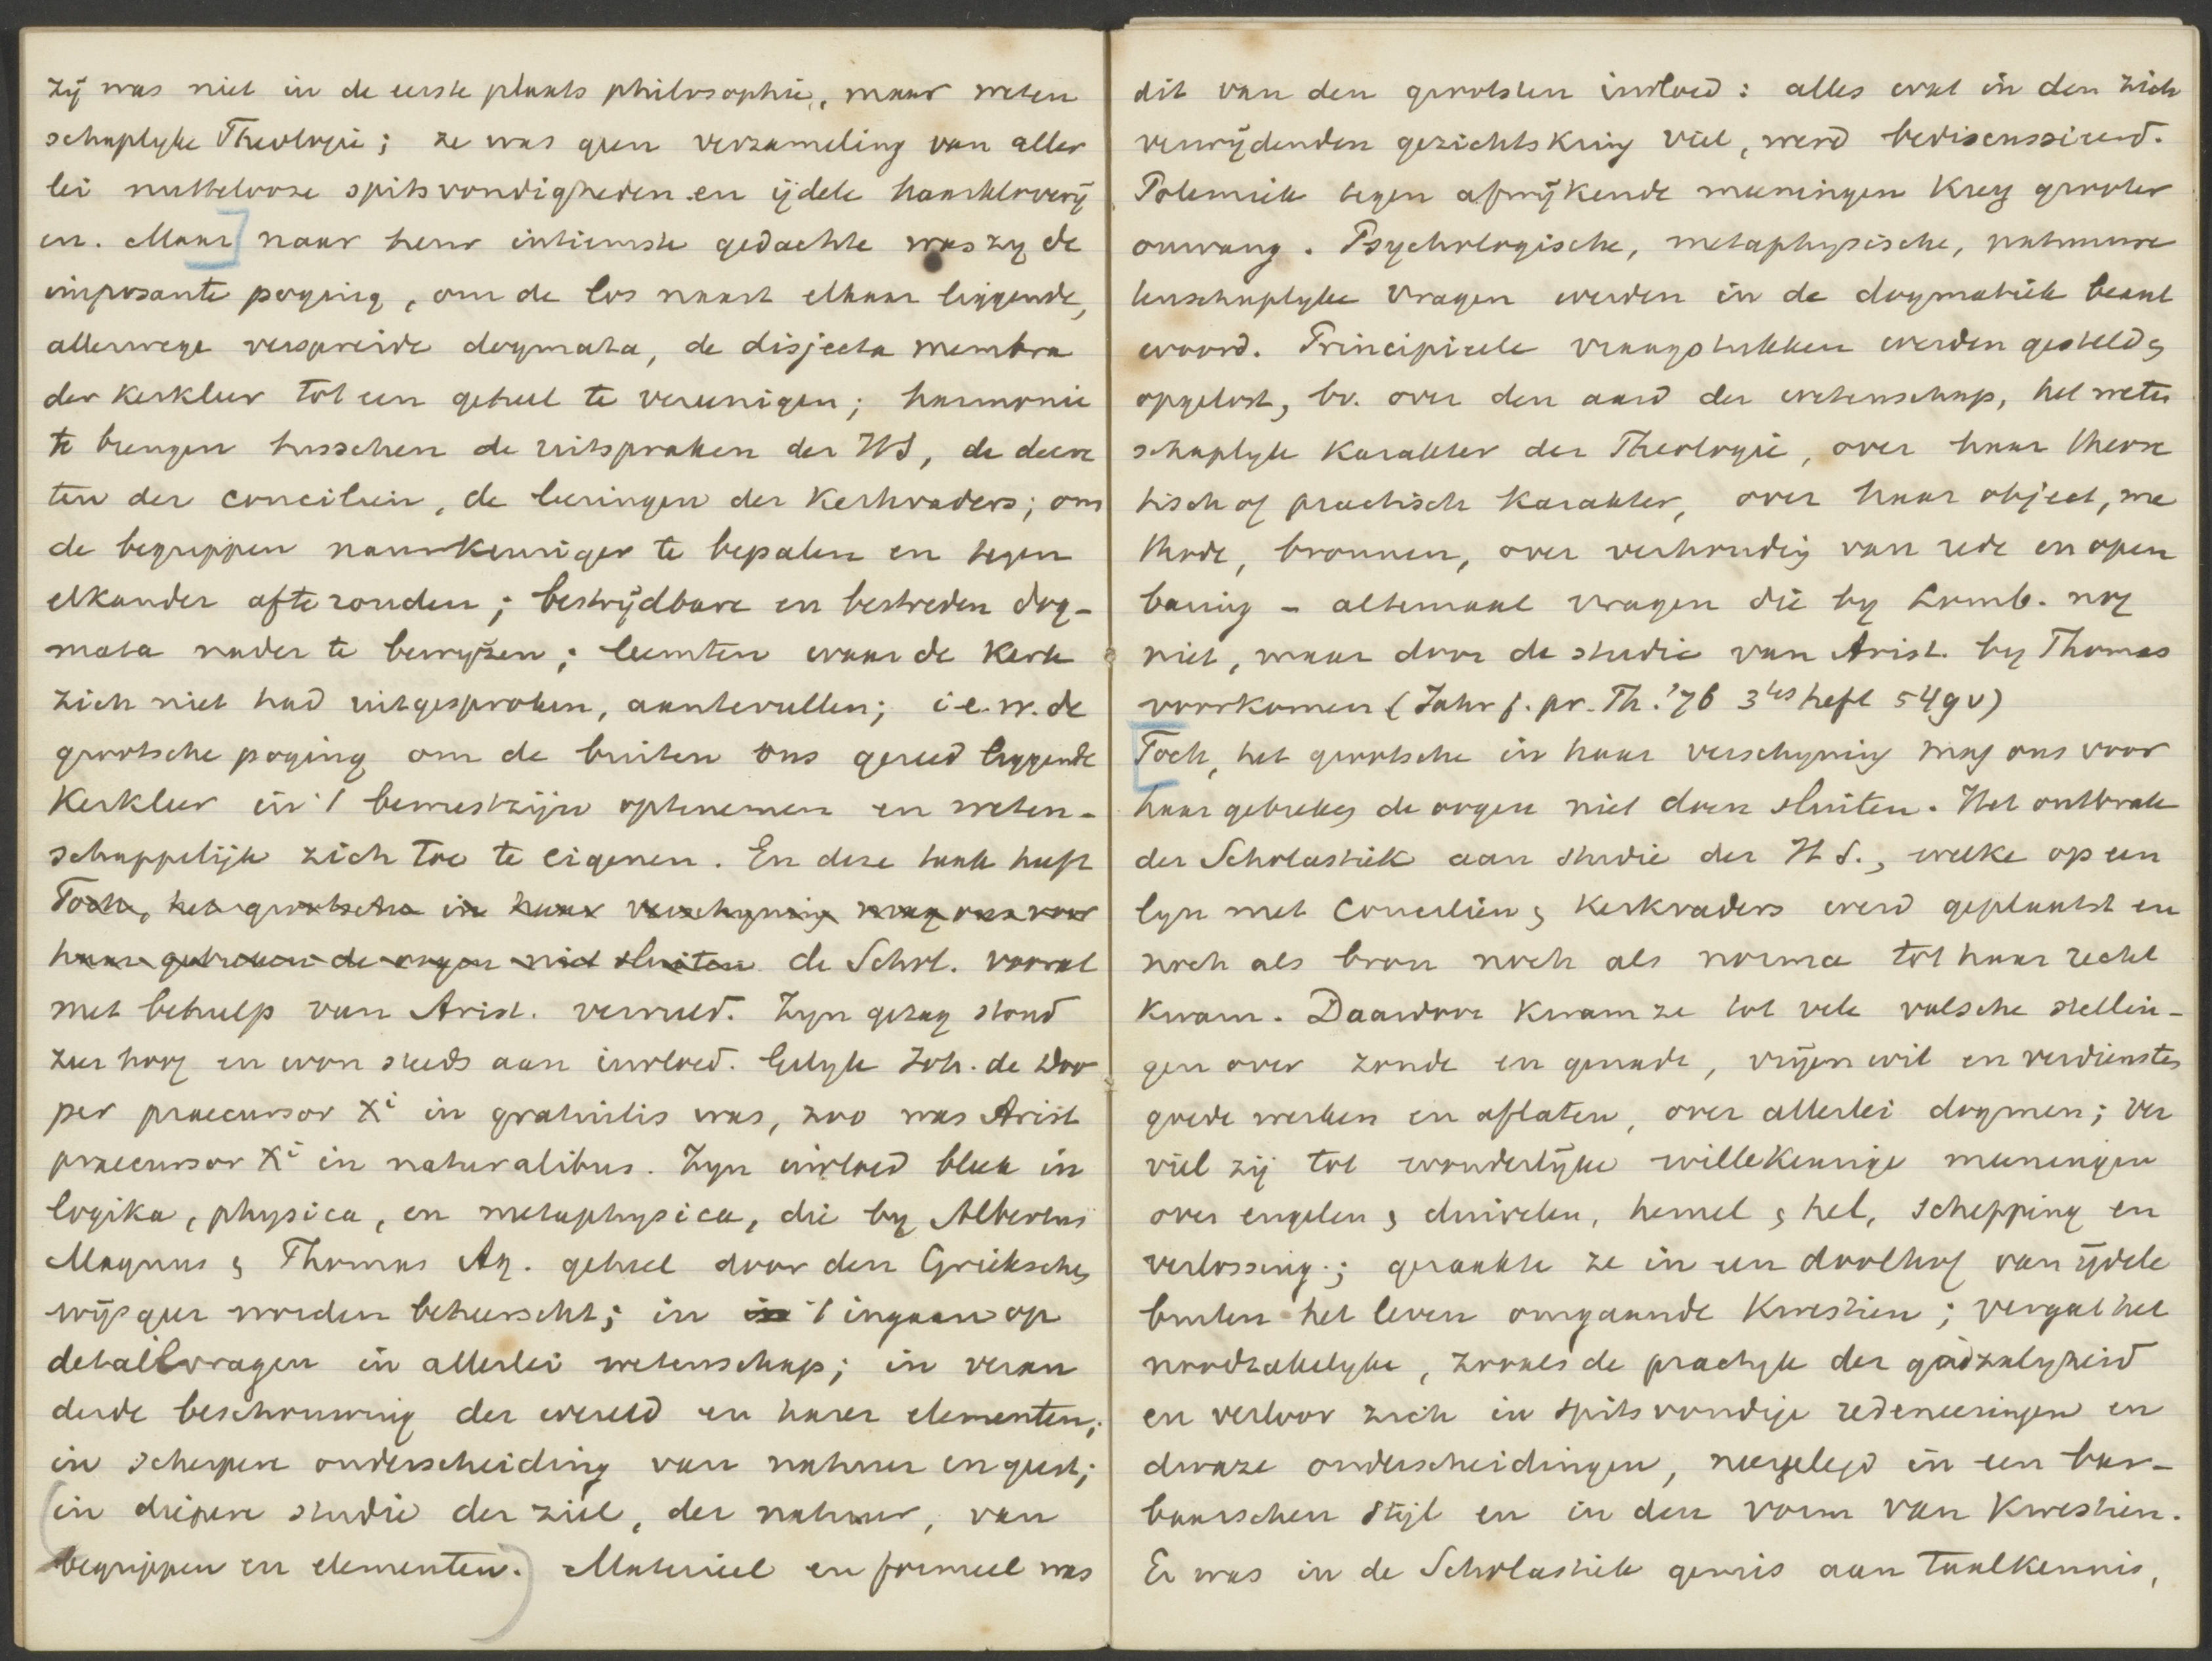 zij was niet in de eerste plaats philosophie, maar weten
schaplyke Theologie; ze was geen verzameling van aller
lei nutteloose spitsvondigheden en ijdele haarkloverij
en. Maar] naar heur intiemste gedachte was zy de
imposante poging, om de los naast elkaar liggende,
allerwege verspreide dogmata, de disjecta membra
der Kerkleer tot een geheel te vereenigen; harmonie
te brengen tusschen de uitspraken der HS, de decre
ten der conciliën, de leeringen der Kerkvaders; om
de begrippen nauwkeuriger te bepalen en tegen
elkander afteronden; bestrijdbare en bestreden dog-
mata nader te bewyzen; leemten waar de Kerk
zich niet had uitgesproken, aantevullen; i.e.w. de
grootsche poging om de buiten ons gereed liggende
Kerkleer in 't bewustzijn optenemen en weten-
schappelijk zich toe te eigenen. En deze taak heeft
Toch, het grootsche in haar verschyning mag ons voor
haar gebreken de oogen niet sluiten de Schol. vooral
met behulp van Arist. vervuld. Zyn gezag stond
zeer hoog en won steeds aan invloed. Gelyk Joh. de Doo
per praecursor Xi in gratuitis was, zoo was Arist
praecursor Xi in naturalibus. Zyn invloed bleek in
logika, physica, en metaphysica, die by Albertus
Magnus & Thomas Aq. geheel door den Grieksche
wijsgeer worden beheerscht; in in 't ingaan op
detailvragen in allerlei wetenschap; in veran
derde beschouwing der wereld en harer elementen;
in scherpere onderscheiding van natuur en geest;
(in diepere studie der ziel, der natuur, van
begrippen en elementen.) Materieel en formeel was
dit van den grootsten invloed: alles wat in den zich
verwijdenden gezichtskring viel, werd bediscussieerd.
Polemiek tegen afwijkende meeningen kreeg grooter
omvang. Psychologische, metaphysische, natuurwe
tenschaplyke vragen werden in de dogmatiek beant
woord. Principieele vraagstukken werden gesteld &
opgelost, bv. over den aard der wetenschap, het weten
schaplyk karakter der Theologie, over haar theore
tisch of practisch karakter, over haar object, me
thode, bronnen, over verhouding van rede en open
baring - altemaal vragen die by Lomb. nog
niet, maar door de studie van Arist. by Thomas
voorkomen (Jahr f. pr. Th. '76 3tes heft 549 v)
[Toch, het grootsche in haar verschyning mag ons voor
haar gebreken de oogen niet doen sluiten. Het ontbrak
der Scholastiek aan studie der H S., welke op een
lyn met Conciliën & Kerkvaders werd geplaatst en
noch als bron noch als norma tot haar recht
kwam. Daardoor kwam ze tot vele valsche stellin-
gen over zonde en genade, vrijen wil en verdienste
goede werken en aflaten, over allerlei dogmen; ver
viel zij tot wonderlijke willekeurige meeningen
over engelen & duivelen, hemel & hel, schepping en
verlossing; geraakte ze in een doolhof van ijdele
buiten het leven omgaande Kwestien; vergat het
noodzakelyke, zooals de practyk der godzalyheid
en verloor zich in spitsvondige redeneeringen en
dwaze onderscheidingen, neergelegd in een bar-
baarschen stijl en in den vorm van Kwestien.
Er was in de Scholastiek gemis aan taalkennis,